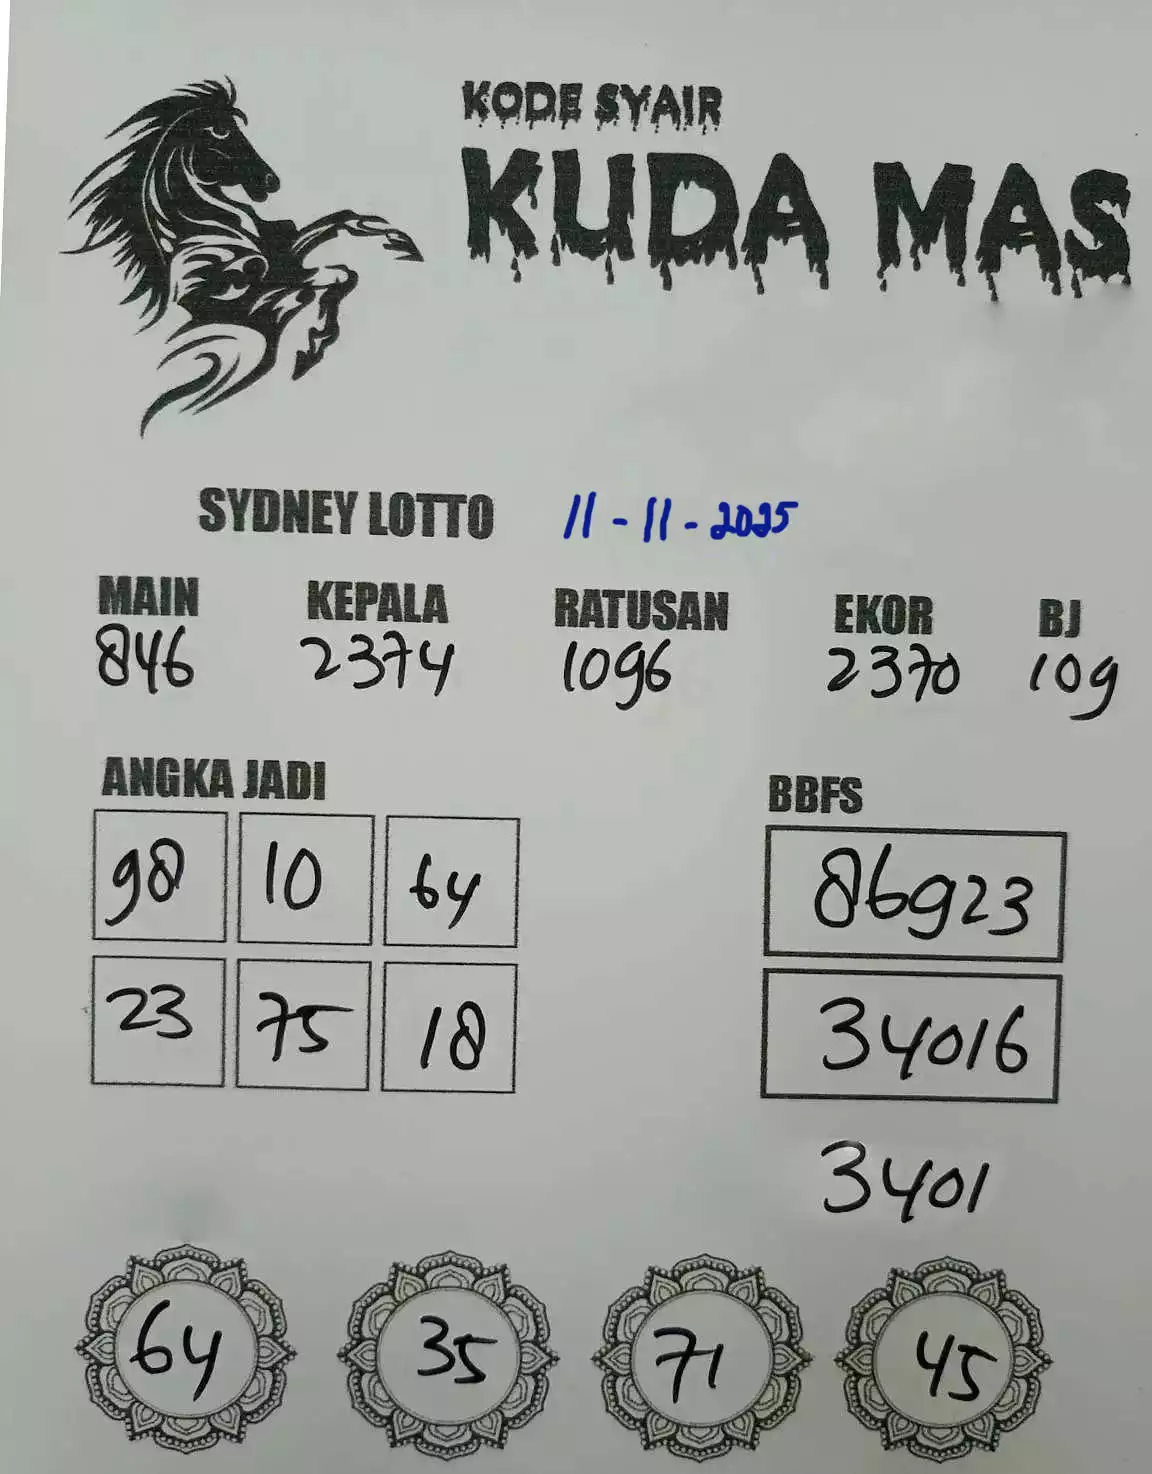 KODE SYAIR
KUDA MAS
SYDNEY LOTTO 11-11-2025
MAIN KEPALA RATUSAN EKOR BJ
846 2374 1096 2370 109
ANGKA JADI BBFS
98 10 64 86923
23 75 18 34016
3401
64 35 71 45